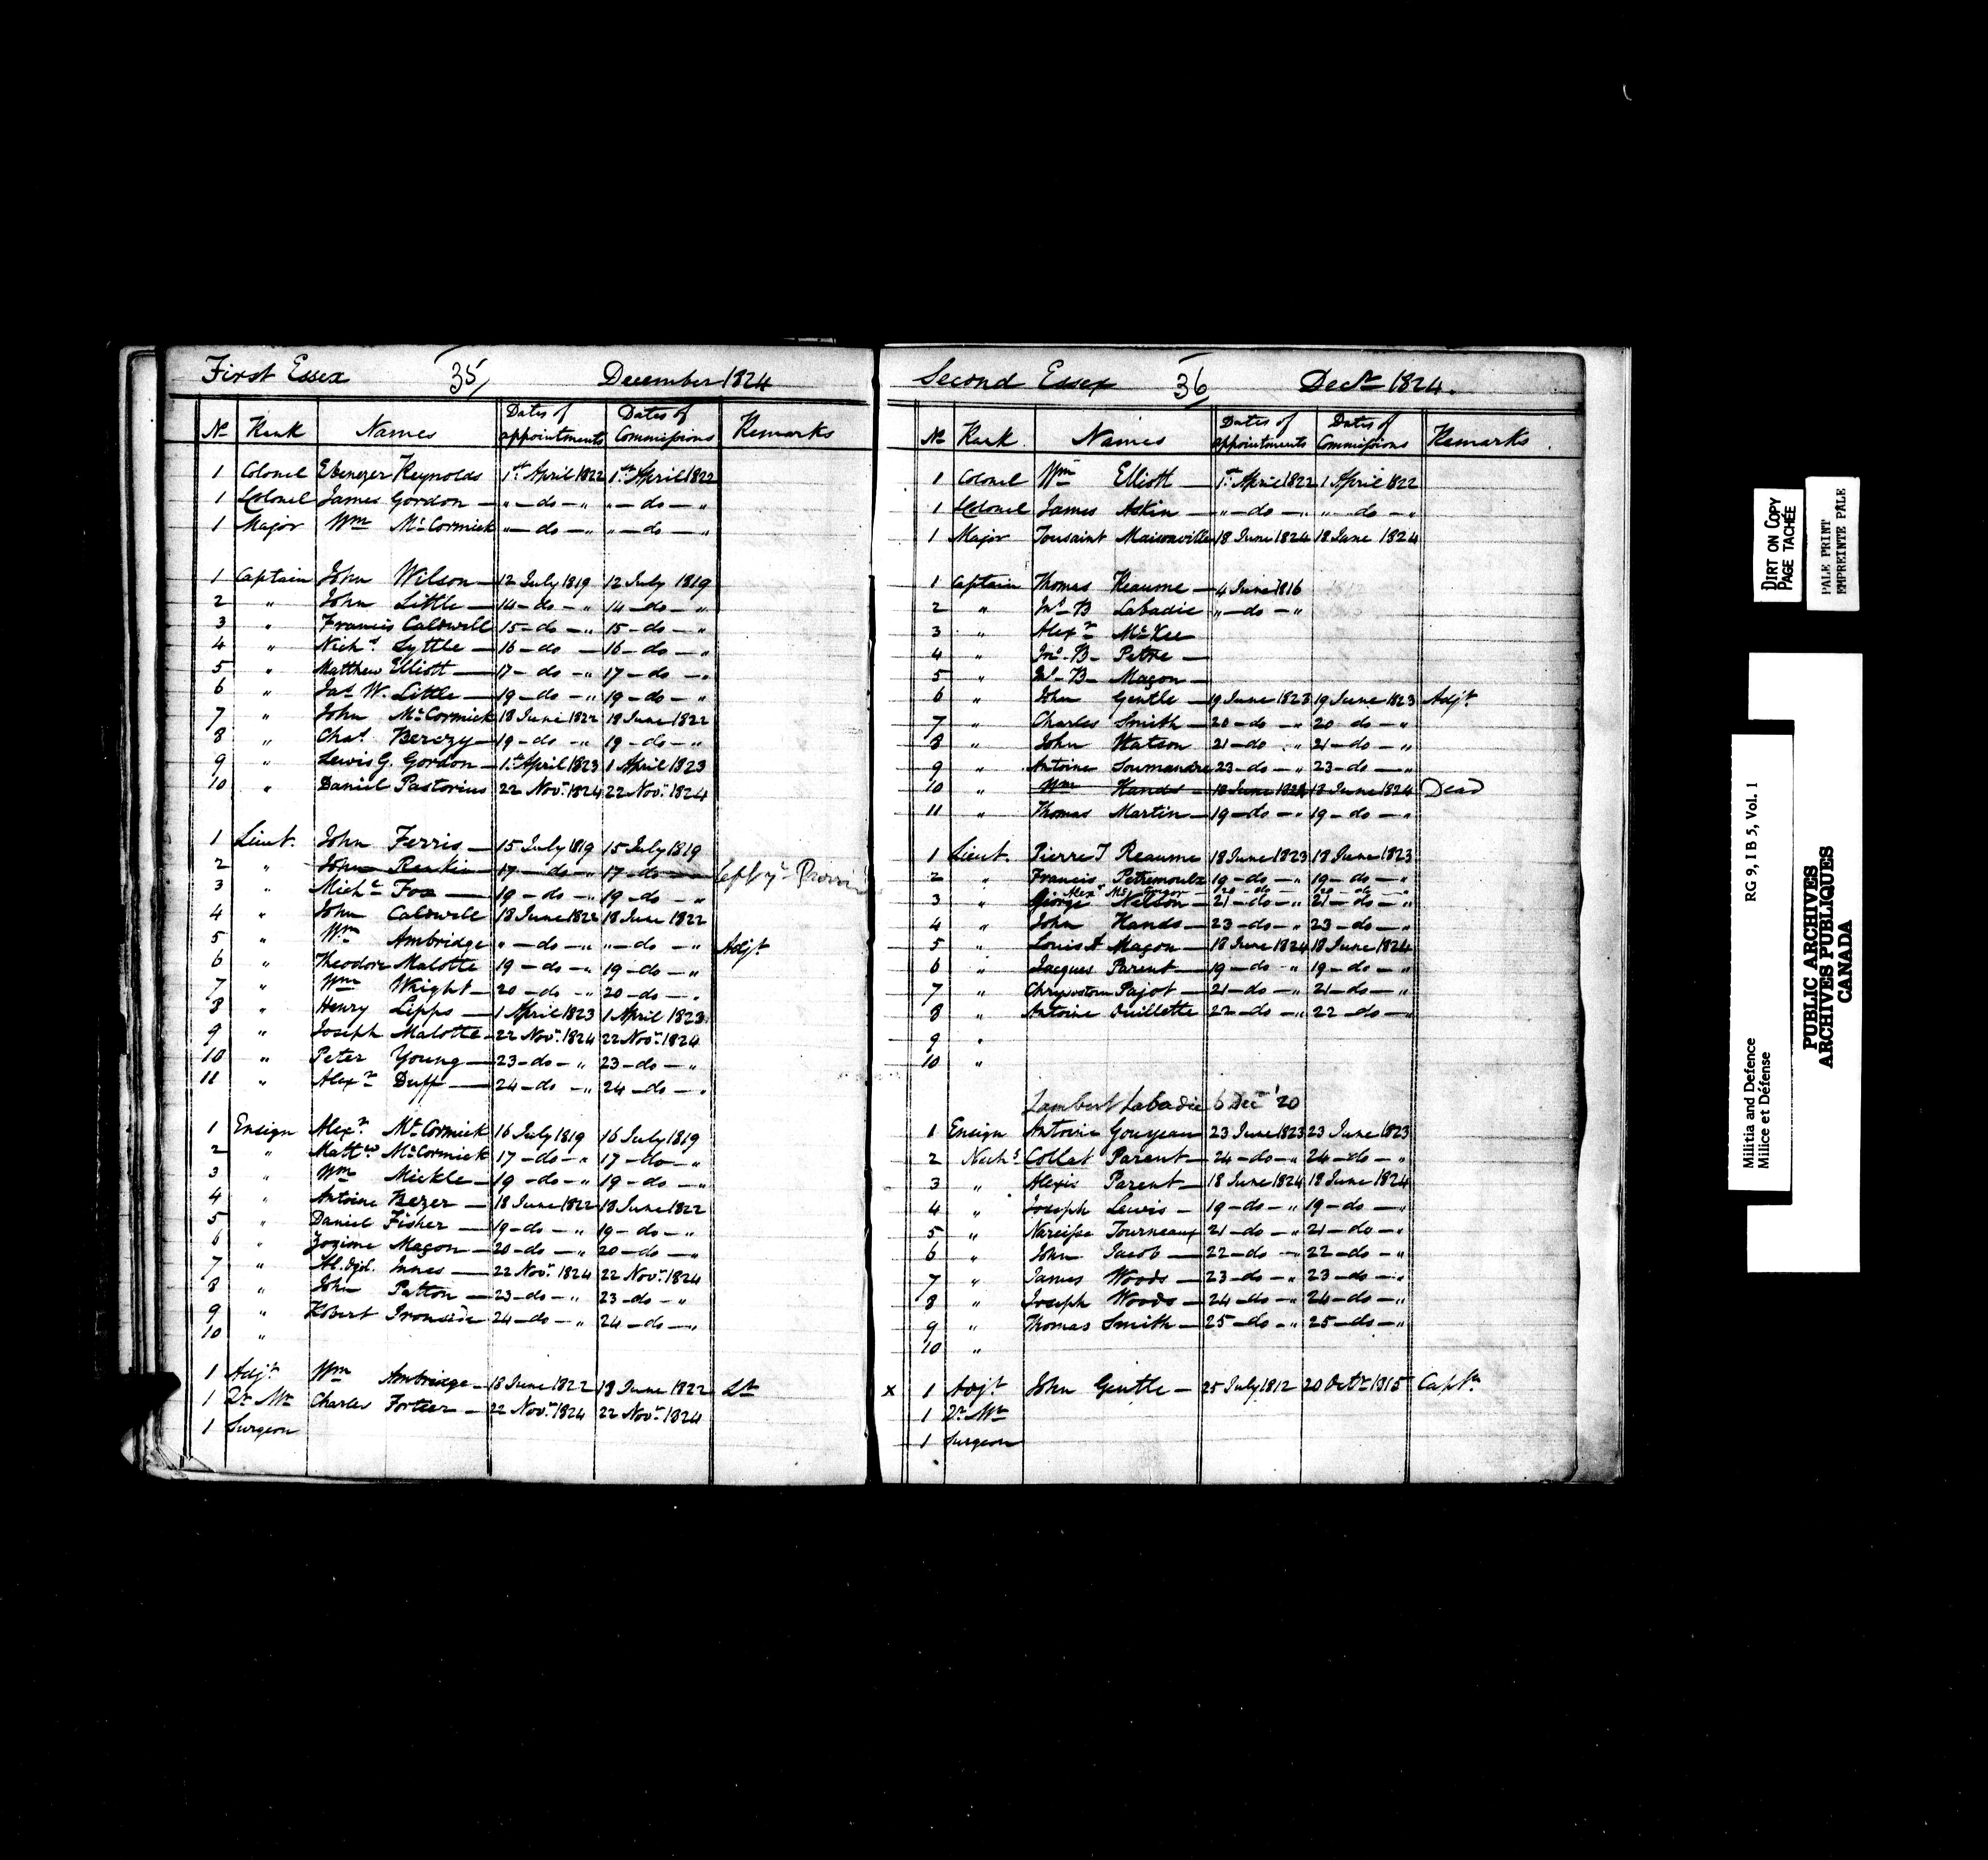 First Essex 35, December 1824
No Rank Names Dates of appointments Dates of Commissions Remarks
1 Colonel Ebenezer Reynolds 1st April 1822 1st April 1822
1 LColonel James Gordon — " — do — " " — do — "
1 Major Wm McCormick " — do — " " — do — "
1 Captain John Wilson — 12 July 1819 12 July 1819
2 " John Little — 14 — do — " 14 — do — "
3 " Francis Caldwell 15 — do — " 15 — do — "
4 " Nichs Lyttle — 16 — do — 16 — do — "
5 " Matthew Elliott — 17 — do — " 17 — do — "
6 " Jas W. Little — 19 — do — " 19 — do — "
7 " John McCormick 18 June 1822 18 June 1822
8 " Chas Berczy — 19 — do — " 19 — do — "
9 " Lewis G. Gordon — 1st April 1823 1 April 1823
10 " Daniel Pastorius 22 Novr 1824 22 Novr 1824
1 Lieut. John Ferris — 15 July 1819 15 July 1819
2 " John Rankin — 17 — do — " 17 — do — left ye Provin
3 " Michl Fox — 19 — do — " 19 — do — "
4 " John Caldwell 18 June 1822 18 June 1822
5 " Wm Ambridge " — do — " " — do — " Adjt
6 " Theodore Malotte 19 — do — " 19 — do — "
7 " Wm Wright — 20 — do — " 20 — do — "
8 " Henry Lipps — 1 April 1823 1 April 1823
9 " Joseph Malotte — 22 Novr 1824 22 Novr 1824
10 " Peter Young — 23 — do — " 23 — do — "
11 " Alexr Duff — 24 — do — " 24 — do — "
1 Ensign Alexr McCormick 16 July 1819 16 July 1819
2 " Mattw McCormick 17 — do — " 17 — do — "
3 " Wm Mickle — 19 — do — " 19 — do — "
4 " Antoine Bezer — 18 June 1822 18 June 1822
5 " Daniel Fisher — 19 — do — " 19 — do — "
6 " Zozime Maçon — 20 — do — " 20 — do — "
7 " Innes — 22 Novr 1824 22 Novr 1824
8 " John Patton — 23 — do — " 23 — do — "
9 " Robert Ironside 24 — do — " 24 — do — "
10 "
1 Adjt Wm Ambridge — 18 June 1822 18 June 1822 Lt
1 Qr Mr Charles Fortier — 22 Novr 1824 22 Novr 1824
1 Surgeon
Second Essex 36 Decr 1824.
No Rank Names Dates of appointments Dates of Commissions Remarks
1 Colonel Wm Elliott — 1st April 1822 1 April 1822
1 LColonel James Askin — " — do — " " — do — "
1 Major Tousaint Maisonville 18 June 1824 18 June 1824
1 Captain Thomas Reaume — 4 June 1816
2 " Jno B Labadie " — do — "
3 " Alexr McKee
4 " Jno B — Petre —
5 " Jno B — Maçon —
6 " John Gentle — 19 June 1823 19 June 1823 Adjt
7 " Charles Smith — 20 — do — " 20 — do — "
8 " John Watson 21 — do — " 21 — do — "
9 " Antoine Soumandre 23 — do — " 23 — do — "
10 " Wm Hands — 18 June 1824 18 June 1824 Dead
11 " Thomas Martin — 19 — do — " 19 — do — "
1 Lieut. Pierre T Reaume 18 June 1823 18 June 1823
2 " Francis Petremoulx 19 — do — " 19 — do — "
Alexr McGregor — 20 — do — 20 — do — "
3 " George Nelson — 21 — do — " 21 — do — "
4 " John Hands — 23 — do — " 23 — do — "
5 " Louis A Maçon — 18 June 1824 18 June 1824
6 " Jacques Parent — 19 — do — " 19 — do — "
7 " Chrysostom Pajot — 21 — do — " 21 — do — "
8 " Antoine Ouillette 22 — do — " 22 — do — "
9 "
10 "
Lambert Labadie 6 Decr '20
1 Ensign Antoine Gouyeau 23 June 1823 23 June 1823
2 Nichs Collat Parent — 24 — do — " 24 — do — "
3 " Alexis Parent — 18 June 1824 18 June 1824
4 " Joseph Lewis — 19 — do — " 19 — do — "
5 " Narcisse Tourneaux 21 — do — " 21 — do — "
6 " John Jacob — 22 — do — " 22 — do — "
7 " James Woods — 23 — do — " 23 — do — "
8 " Joseph Woods — 24 — do — " 24 — do — "
9 " Thomas Smith — 25 — do — " 25 — do — "
10 "
x 1 Adjt John Gentle — 25 July 1812 20 Octr 1815 Captn
1 Qr Mr
1 Surgeon
DIRT ON COPY
PAGE TACHÉE
PALE PRINT
EMPREINTE PALE
RG 9, I B 5, Vol. 1
Militia and Defence
Milice et Défense
PUBLIC ARCHIVES
ARCHIVES PUBLIQUES
CANADA